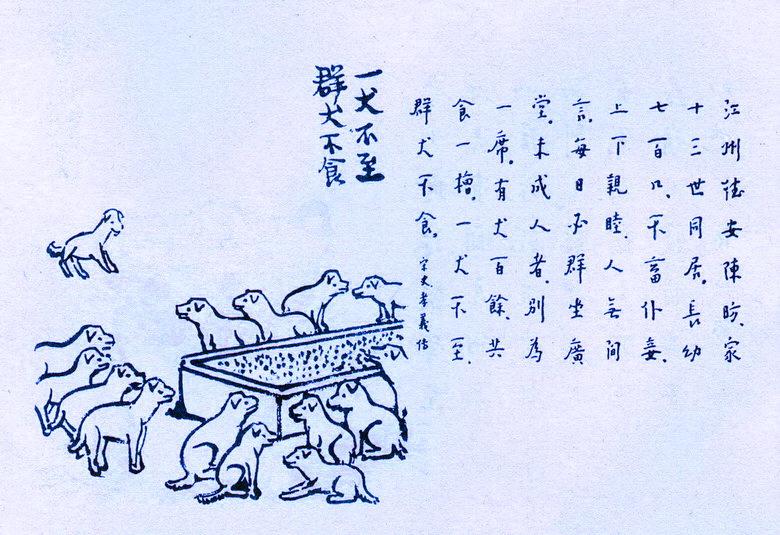 江州德安陳昉、家
十三世同居。長幼
七百口、不畜仆妾、
上下親睦、人無間
言。每日必群坐廣
堂。未成人者、別為
一席。有犬百餘、共
食一槽。一犬不至、
群犬不食。宋史孝義传
一犬不至
群犬不食